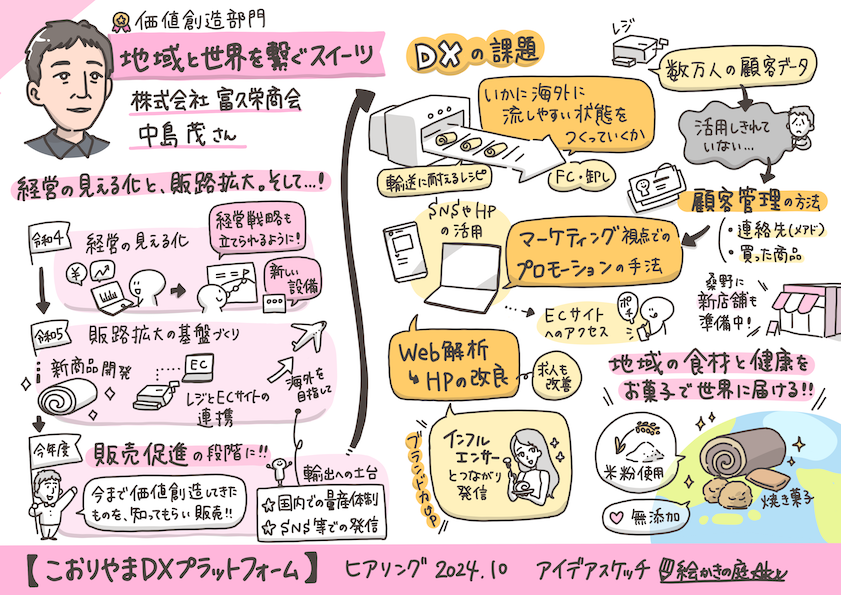 価値創造部門
地域と世界を繋ぐスイーツ
株式会社 富久栄商会
中島 茂さん
経営の見える化と、販路拡大。そして…!
令和4
経営の見える化
経営戦略も
立てられるように!
新しい
設備
令和5
販路拡大の基盤づくり
新商品開発
EC
レジとECサイトの
連携
海外を
目指して
今年度
販売促進の段階に!!
今まで価値創造してきた
ものを、知ってもらい販売!!
輸出への土台
☆国内での量産体制
☆SNS等での発信
DXの課題
いかに海外に
流しやすい状態を
つくっていくか
輸送に耐えるレシピ
FC・卸し
レジ
数万人の顧客データ
活用しきれて
いない…
顧客管理の方法
・連絡先(メアド)
・買った商品
SNSやHP
の活用
マーケティング視点での
プロモーションの手法
ECサイト
へのアクセス
ポチ
桑野に
新店舗も
準備中!
Web解析
↳HPの改良
求人も
改善
ブランド力UP
インフル
エンサー
とつながり
発信
地域の食材と健康を
お菓子で世界に届ける!!
米粉使用
無添加
焼き菓子
【こおりやまDXプラットフォーム】 ヒアリング 2024.10 アイデアスケッチ 絵かきの庭